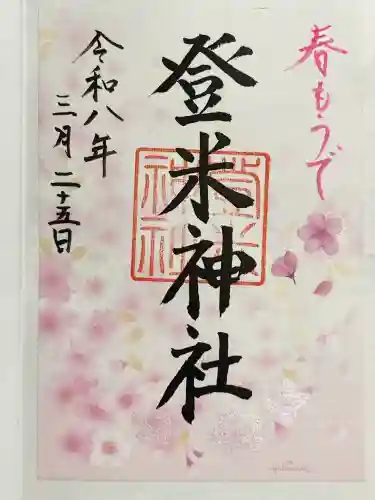 春もうで
登米神社
登米
神社
令和八年
三月二十五日